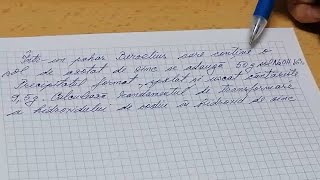 Într-un pahar Berzelius care conține o
sol de acetat de zinc se adaugă 50 g sol NaOH
Precipitatul format, spălat și uscat cântărește
9,5 g. Calculează randamentul de transformare
a hidroxidului de sodiu în hidroxid de zinc